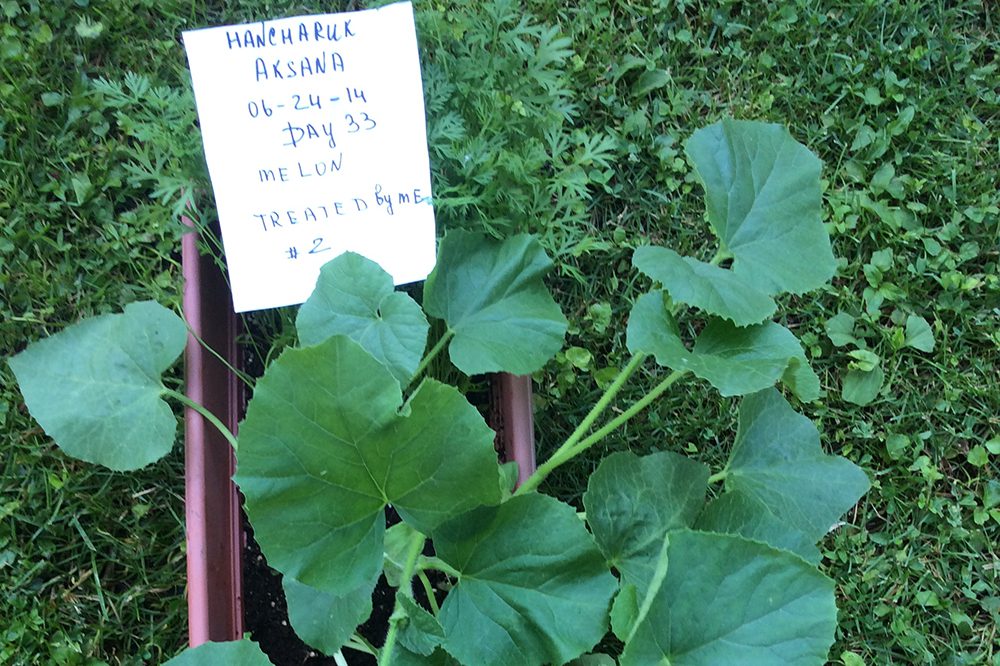 HANCHARUK
AKSANA
06-24-14
DAY 33
MELON
TREATED by ME
# 2